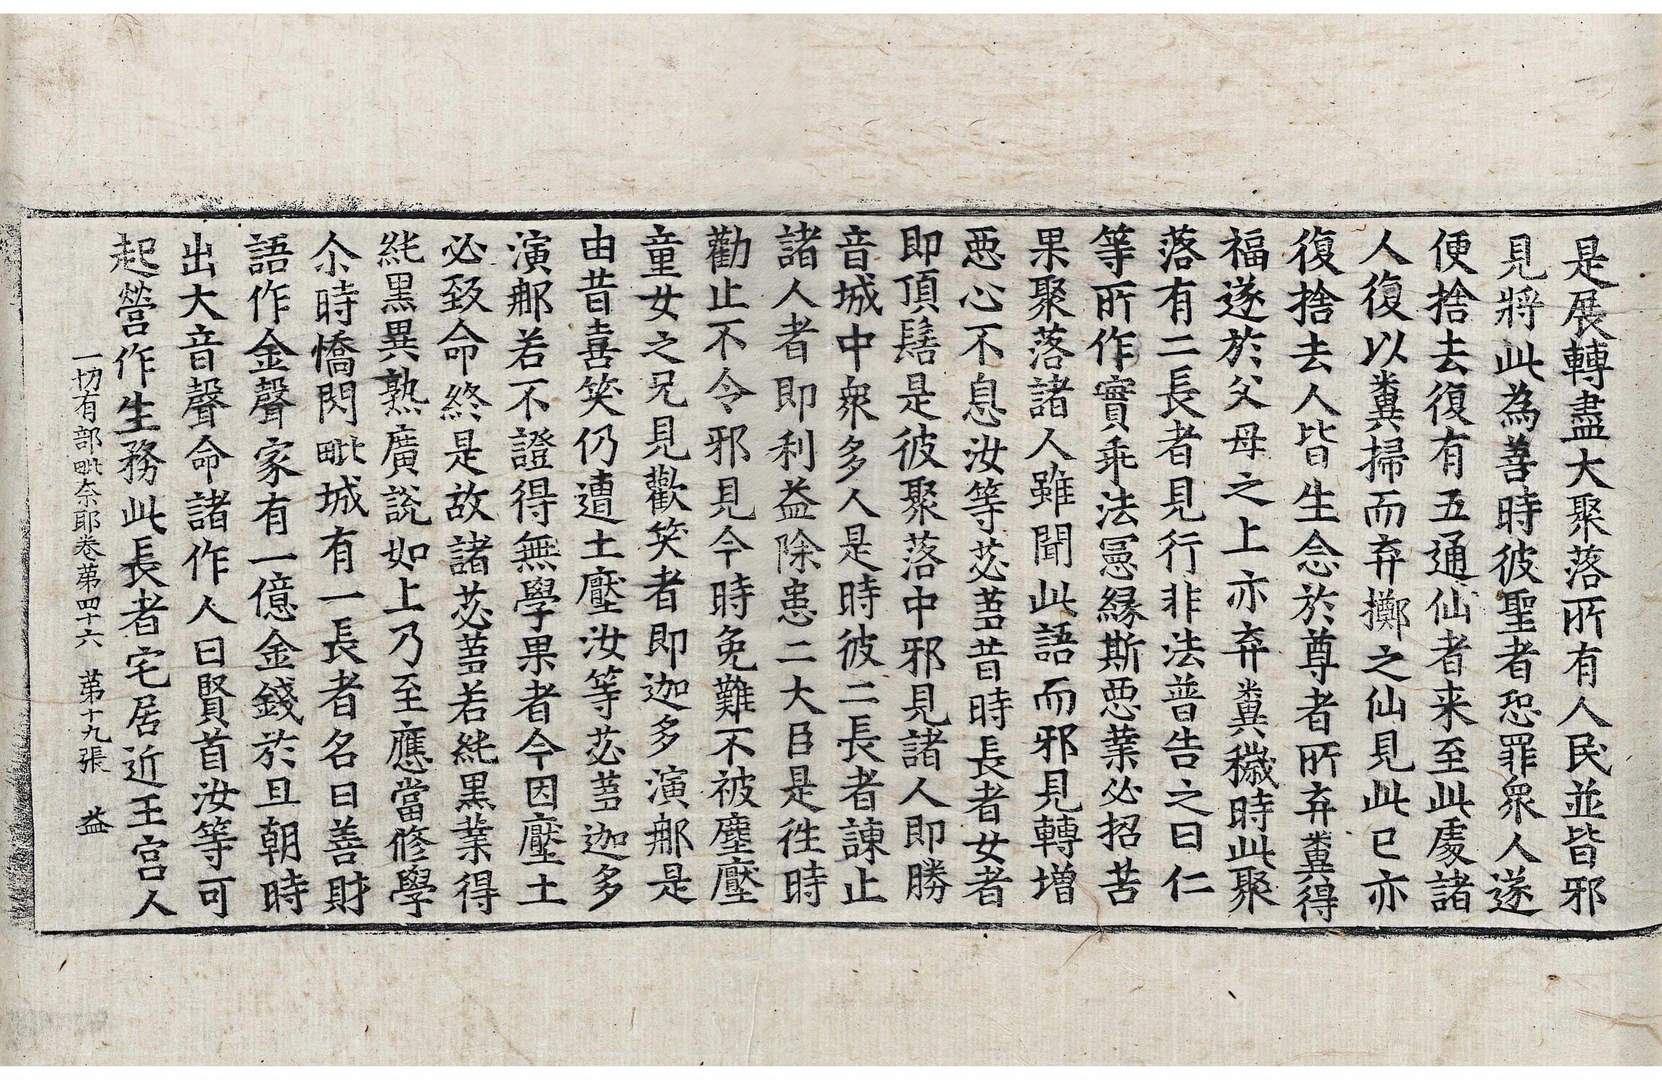 是展轉盡大聚落所有人民並皆邪
見將此為善時彼聖者恐罪眾人遂
便捨去復有五通仙者来至此處諸
人復以糞掃而弃擲之仙見此已亦
復捨去人皆生念於尊者所弃糞得
福遂於父母之上亦弃糞穢時此聚
落有二長者見行非法普告之曰仁
等所作實乖法冝緣斯惡業必招苦
果聚落諸人雖聞此語而邪見轉增
惡心不息汝等苾蒭昔時長者女者
即頂髻是彼聚落中邪見諸人即勝
音城中衆多人是時彼二長者諫止
諸人者即利益除患二大臣是徃時
勸止不令邪見今時免難不被塵壓
童女之兄見歡笑者即迦多演郍是
由昔喜笑仍遭土壓汝等苾蒭迦多
演郍若不證得無學果者今因壓土
必致命終是故諸苾蒭若純黒業得
純黒異熟廣說如上乃至應當修學
尒時憍閃毗城有一長者名曰善財
語作金聲家有一億金錢於旦朝時
出大音聲命諸作人曰賢首汝等可
起營作生務此長者宅居近王宮人
一切有部毗奈耶卷苐四十六 苐十九張 益